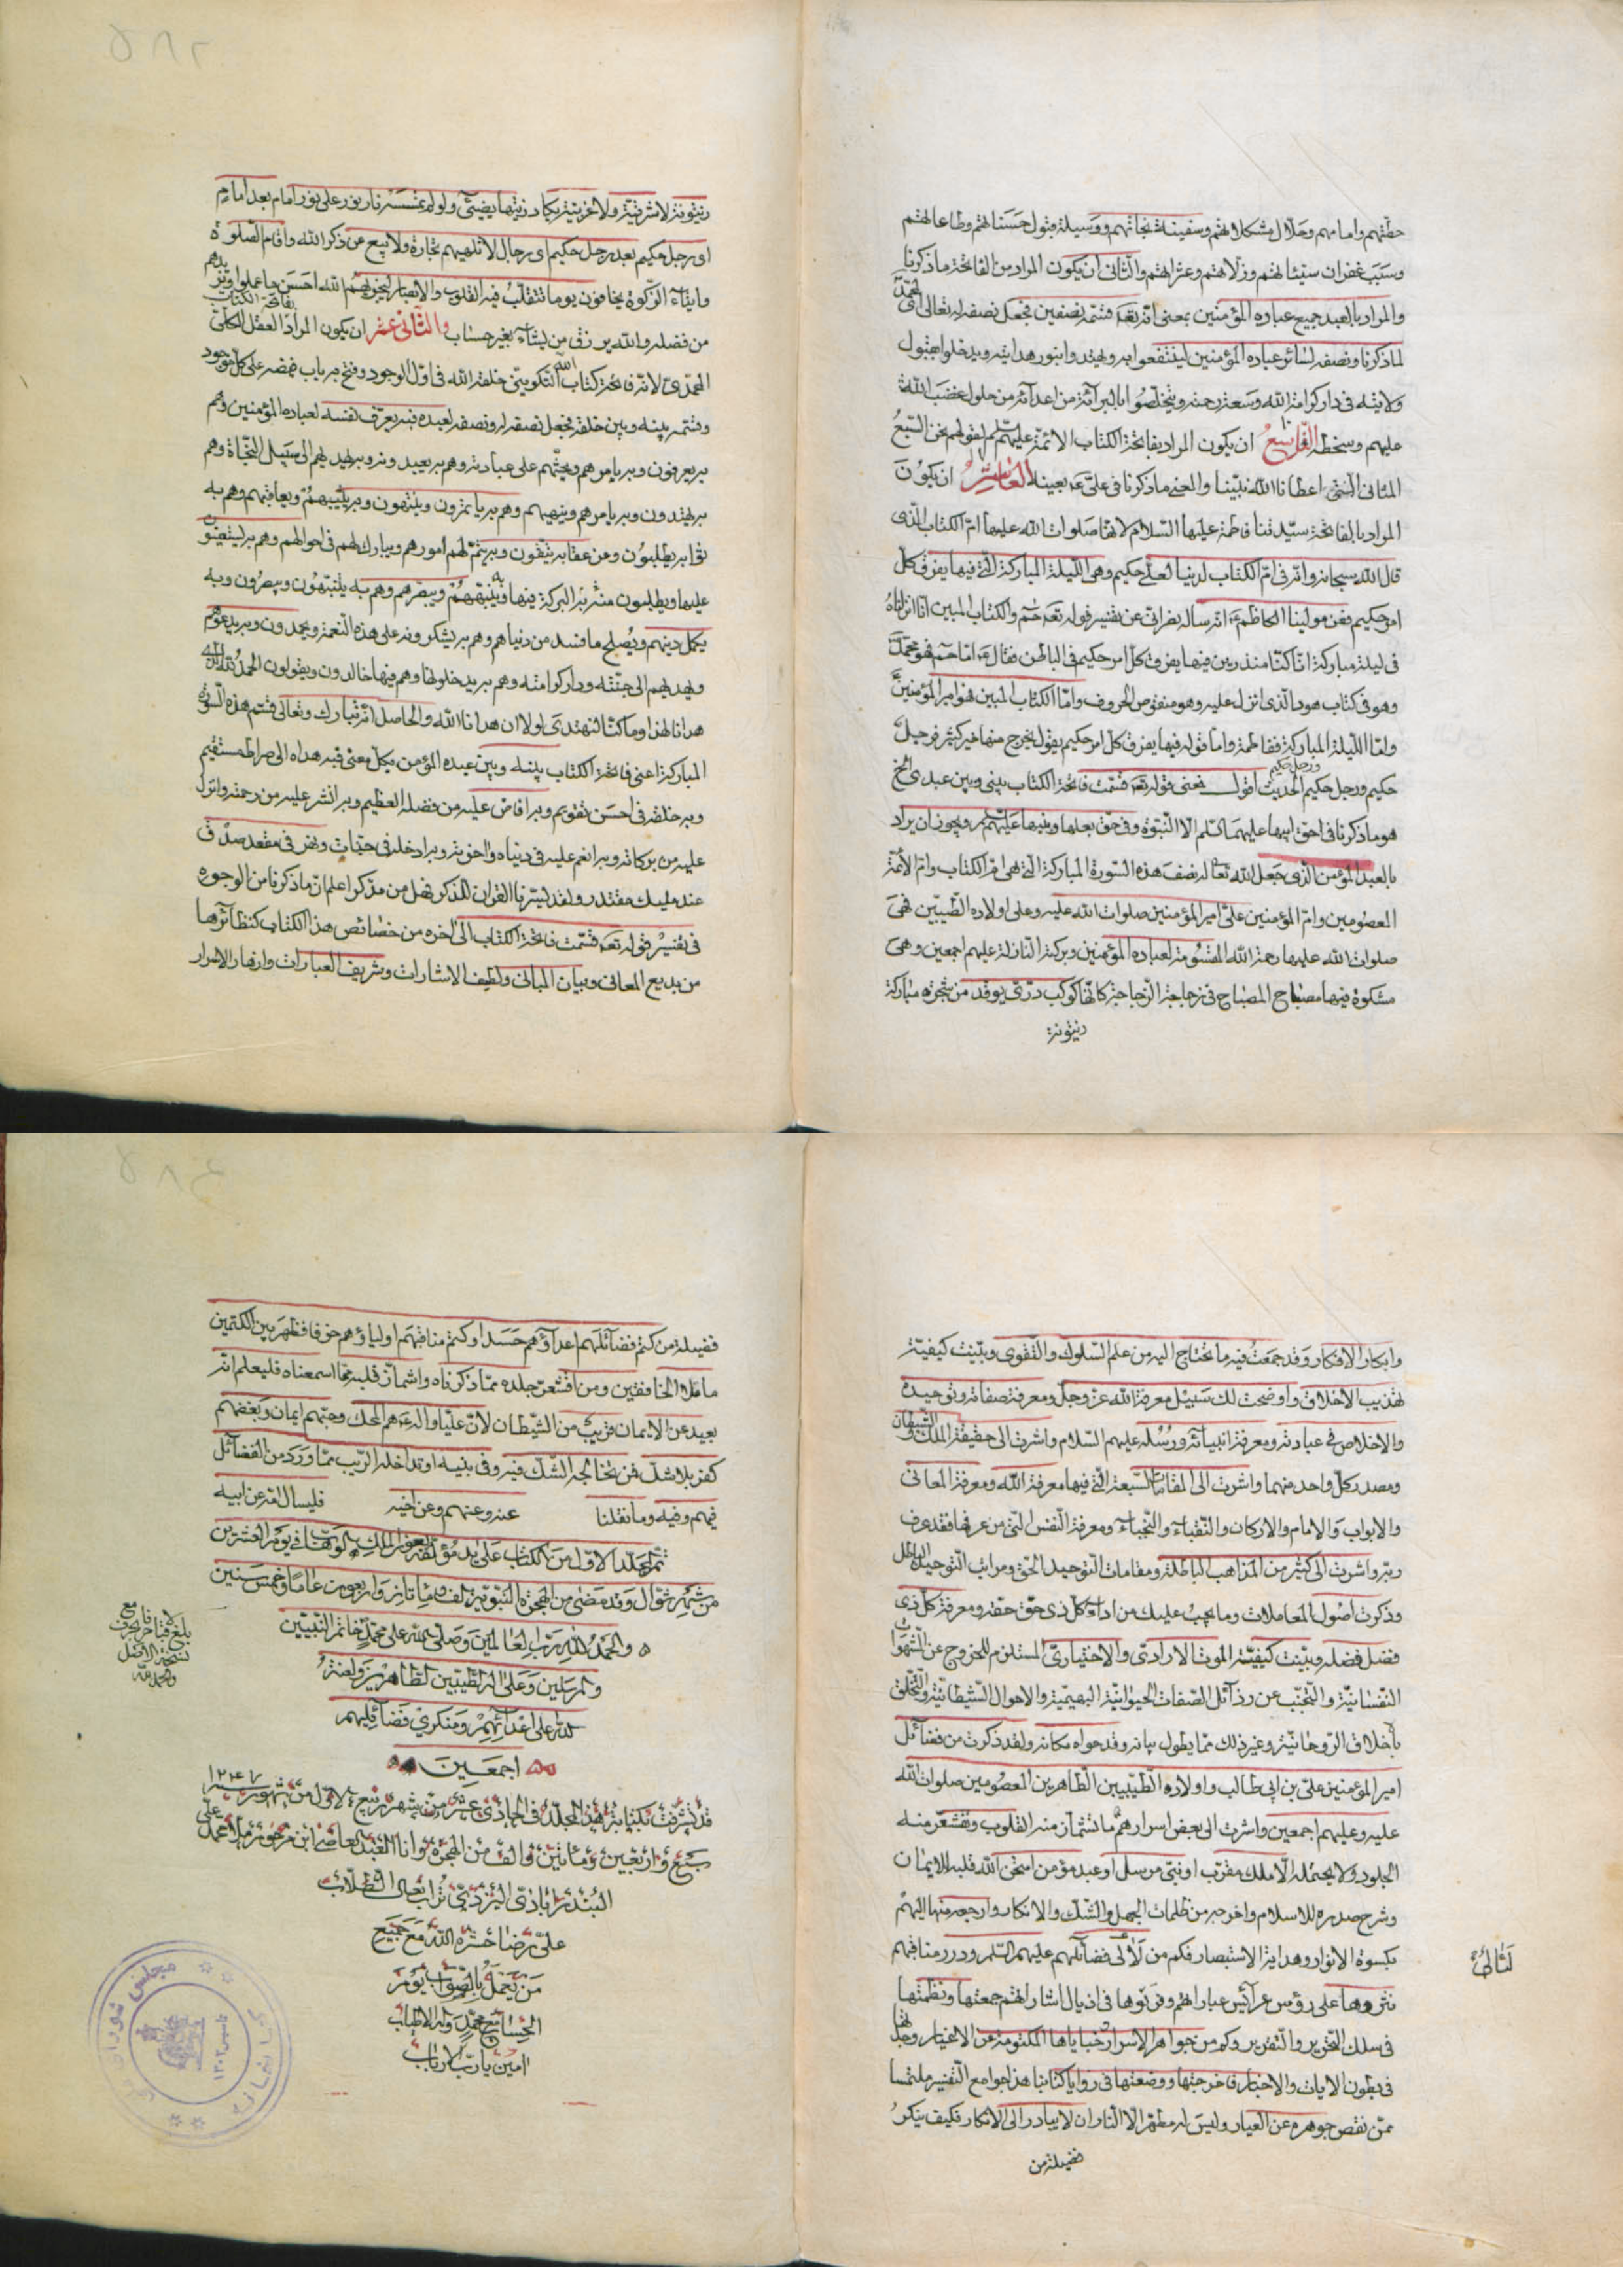 حقهم وامامهم وحلال مشكلاتهم وسفينة نجاتهم ووسيلة قبول حسناتهم وطاعاتهم
وسبب غفران سيئاتهم وزلاتهم وعثراتهم والثانى ان يكون المراد من الفاتحة ما ذكرنا
والمراد بالعبد جميع عباده المؤمنين بمعنى انه تعه قسمه نصفين فجعل نصفه له تعالى
لما ذكرنا ونصفه لسائر عباده المؤمنين لينتفعوا به ويهتدوا بنور هدايته ويدخلوا بقبول
ولايته فى دار كرامة الله وسعة رحمته ويتخلصوا بالبرآئة من اعدآئه من حلول غضب الله
عليهم وسخطه التاسع ان يكون المراد بفاتحة الكتاب الائمة عليهم السلم لقولهم نحن السبع
المثانى التى اعطانا الله نبينا والمعنى ما ذكرنا فى على عه بعينه العاشر ان يكون
المراد بالفاتحة سيدتنا فاطمة عليها السلام لانها صلوات الله عليها ام الكتاب الذى
قال الله سبحانه وانه فى ام الكتاب لدينا لعلى حكيم وهى الليلة المباركة التى فيها يفرق كل
امر حكيم فعن مولينا الكاظم ع انه ساله نصرانى عن تفسير قوله تعه حم والكتاب المبين انا انزلناه
فى ليلة مباركة انا كنا منذرين فيها يفرق كل امر حكيم فى الباطن فقال ع اما حم فهو محمد
وهو فى كتاب هود الذى انزل عليه وهو منقوص الحروف واما الكتاب المبين فهو امير المؤمنين
واما الليلة المباركة ففاطمة واما قوله فيها يفرق كل امر حكيم يقول يخرج منها خير كثير فرجل
حكيم ورجل حكيم ورجل حكيم الحديث اقول فمعنى قوله تعه قسمت فاتحة الكتاب بينى وبين عبدى الخ
هو ما ذكرنا فى حق ابيها عليهما السلم الا النبوة وفى حق بعلها وبنيها عليهم السلم ويجوز ان يراد
بالعبد المؤمن الذى جعل الله تعا له نصف هذه السورة المباركة التى هى ام الكتاب وام الائمة
المعصومين وام المؤمنين على امير المؤمنين صلوات الله عليه وعلى اولاده الطيبين فهى
صلوات الله عليها رحمة الله المقسومة لعباده المؤمنين وبركته النازلة عليهم اجمعين وهى
مشكوة فيها مصباح المصباح فى زجاجة الزجاجة كانها كوكب درى يوقد من شجرة مباركة
زيتونة
زيتونة لا شرقية ولا غربية يكاد زيتها يضيئ ولو لم تمسسه نار نور على نور امام بعد امام
اى رجل حكيم بعد رجل حكيم اى رجال لا تلهيهم تجارة ولا بيع عن ذكر الله واقام الصلوة
وايتاء الزكوة يخافون يوما تتقلب فيه القلوب والابصار ليجزيهم الله احسن ما عملوا ويزيدهم
من فضله والله يرزق من يشاء بغير حساب والثانى عشر ان يكون المراد بفاتحة الكتاب العقل الكلى
المحمدى لانه فاتحة كتاب الله التكوينى خلقه الله فى اول الوجود وفتح به باب فيضه على كل موجود
وقسمه بينه وبين خلقه فجعل نصفه له ونصفه لعبده فبه يعرف نفسه لعباده المؤمنين وهم
به يعرفون وبه يامرهم ويحثهم على عبادته وهم به يعبدونه وبه يهديهم الى سبيل النجاة وهم
به يهتدون وبه يامرهم وينهيهم وهم به ياتمرون وينتهون وبه يثيبهم ويعاقبهم وهم به
ثوابه يطلبون ومن عقابه يتقون وبه يتم لهم امورهم ويبارك لهم فى احوالهم وهم به يستعينون
عليها ويطلبون منه به البركة فيها وبه ينبههم ويبصرهم وهم به يتنبهون ويبصرون وبه
يكمل دينهم ويصلح ما فسد من دنياهم وهم به يشكرونه على هذه النعمة ويحمدون وبه يدعوهم
ويهديهم الى جنته ودار كرامته وهم به يدخلونها وهم فيها خالدون ويقولون الحمد لله الذى
هدانا لهذا وما كنا لنهتدى لولا ان هدانا الله والحاصل انه تبارك وتعالى قسم هذه السورة
المباركة اعنى فاتحة الكتاب بينه وبين عبده المؤمن بكل معنى فبه هداه الى صراط مستقيم
وبه خلقه فى احسن تقويم وبه افاض عليه من فضله العظيم وبه انشر عليه من رحمته وانزل
عليه من بركاته وبه انعم عليه فى دنياه واخرته وبه ادخله فى جنات ونهر فى مقعد صدق
عند مليك مقتدر ولقد يسرنا القران للذكر فهل من مدكر اعلم ان ما ذكرنا من الوجوه
فى تفسير قوله تعه قسمت فاتحة الكتاب الى اخره من خصائص هذا الكتاب كنظائرها
من بديع المعانى وبيان المبانى ولطيف الاشارات وشريف العبارات وازهار الاسرار
وابكار الافكار وقد جمعت فيه ما يحتاج اليه من علم السلوك والتقوى وبينت كيفية
تهذيب الاخلاق واوضحت لك سبيل معرفة الله عز وجل ومعرفة صفاته وتوحيده
والاخلاص فى عبادته ومعرفة انبيائه ورسله عليهم السلام واشرت الى حقيقة الملك والشيطان
ومصدر كل واحد منهما واشرت الى المقامات السبعة التى فيها معرفة الله ومعرفة المعانى
والابواب والامام والاركان والنقباء والنجباء ومعرفة النفس التى من عرفها فقد عرف
ربه واشرت الى كثير من المذاهب الباطلة ومقامات التوحيد الحق ومراتب التوحيد الباطل
وذكرت اصول المعاملات وما يجب عليك من اداء كل ذى حق حقه ومعرفة كل ذى
فضل فضله وبينت كيفية الموت الارادى والاختيارى المستلزم للخروج عن الشهوات
النفسانية والتجنب عن رذآئل الصفات الحيوانية البهيمية والاحوال الشيطانية والتخلق
باخلاق الروحانية وغير ذلك مما يطول بيانه وقد حواه مكانه ولقد ذكرت من فضآئل
امير المؤمنين على بن ابى طالب واولاده الطيبين الطاهرين المعصومين صلوات الله
عليه وعليهم اجمعين واشرت الى بعض اسرارهم ما تشمأز منه القلوب وتقشعر منه
الجلود ولا يحتمله الا ملك مقرب او نبى مرسل او عبد مؤمن امتحن الله قلبه للايمان
وشرح صدره للاسلام واخرجه من ظلمات الجهل والشك والانكار وارجعه منها اليهم
بكسوة الانوار وهداية الاستبصار فكم من لآلى فضآئلهم عليهم السلم ودرر مناقبهم
لئالئ
نثروها على رؤس عرآئس عباراتهم وفرقوها فى اذيال اشاراتهم جمعتها ونظمتها
فى سلك التحرير والتقرير وكم من جواهر الاسرار وخباياها المكتومة عن الاغيار وجدتها
فى بطون الايات والاخبار فاخرجتها ووضعتها فى زوايا كتابنا هذا جوامع التفسير ملتمسا
ممن نقص جوهره عن العيار وليس له مطهر الا النار ان لا يبادر الى الانكار فكيف ينكر
فضيلة من
فضيلة من كتم فضآئلهم اعدآؤهم حسدا وكتم مناقبهم اولياؤهم خوفا فظهر بين الكتمين
ما ملا الخافقين ومن اقشعر جلده مما ذكرناه واشمأز قلبه مما اسمعناه فليعلم انه
بعيد عن الايمان قريب من الشيطان لان عليا واله ع هم المحك وحبهم ايمان وبغضهم
كفر بلا شك فمن يخالجه الشك فيه وفى بنيه او تداخله الريب مما ورد من الفضآئل
فيهم وفيه وما نقلنا عنه وعنهم وعن اخيه فليسال امه عن ابيه
تم المجلد الاول من الكتاب على يد مؤلفه بعون الملك الوهاب فى يوم العشرين
من شهر شوال وقد مضى من الهجرة النبوية الف ومأتان واربعون عاما وخمس سنين
والحمد لله رب العالمين وصلى الله على محمد خاتم النبيين
والمرسلين وعلى اله الطيبين الطاهرين ولعنة
الله على اعدائهم ومنكرى فضائلهم
اجمعين
بلغ
نسخة الاصل
والحمد لله
قد تشرفت بكتابة هذا المجلد فى الحادى عشر من شهر ربيع الاول من شهور سنة ١٢٤٧
سبع واربعين ومأتين والف من الهجرة وانا العبد العاصى ابن مرحوم ملا محمد على
البندرابادى اليزدى تراب نعال الطلاب
على رضا حشره الله مع جميع
من يعمل بالصواب يوم
الحساب مع محمد واله الاطياب
امين يا رب الارباب
كتابخانه مجلس شوراى ملى
تاسيس ١٣٠٢